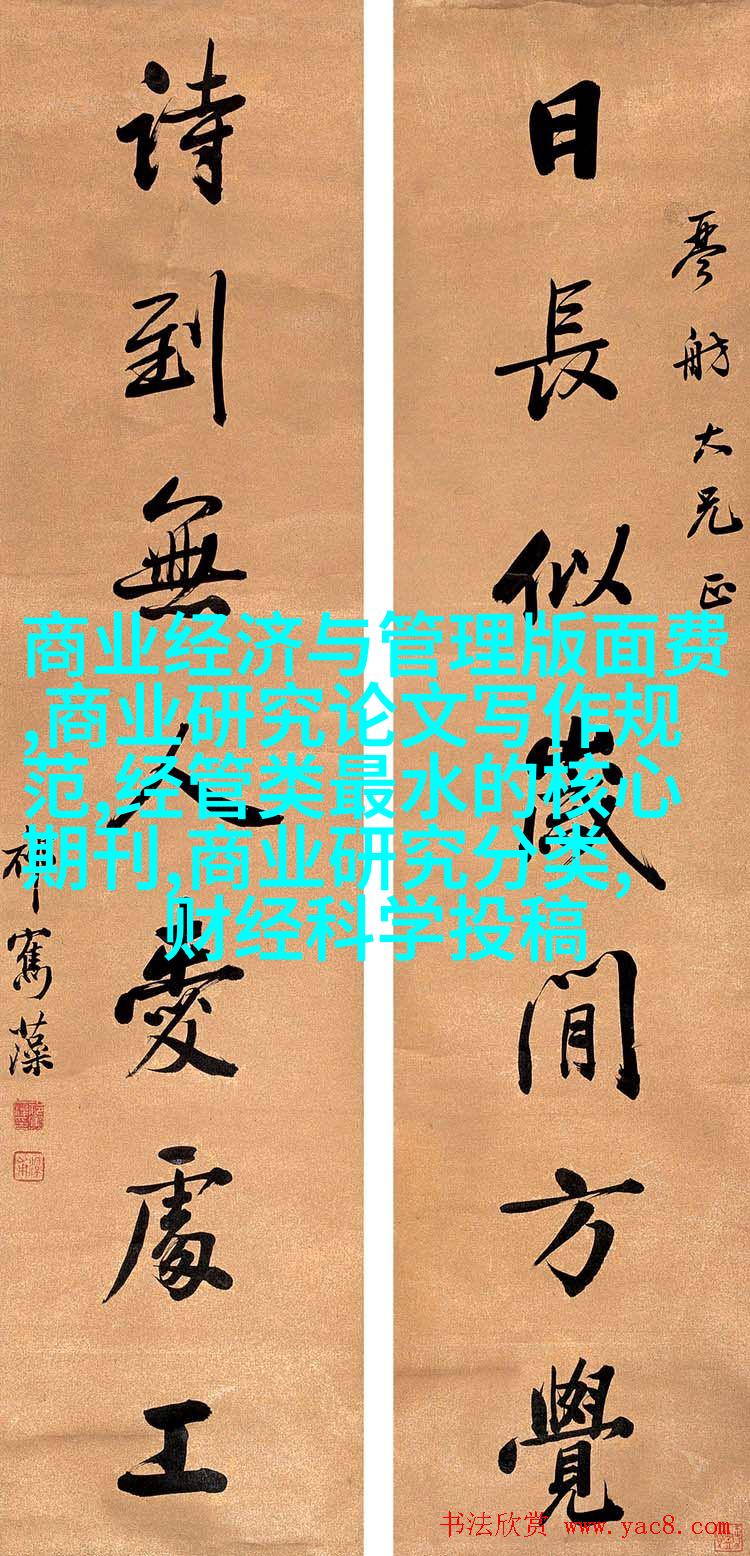 日長似歲閒方覺
琴舫大兄正
詩到無人愛處工
祁寯藻
商业经济与管理版面费
,商业研究论文写作规
范,经管类最水的核心
期刊,商业研究分类,
财经科学投稿
书法欣赏 www.yac8.com